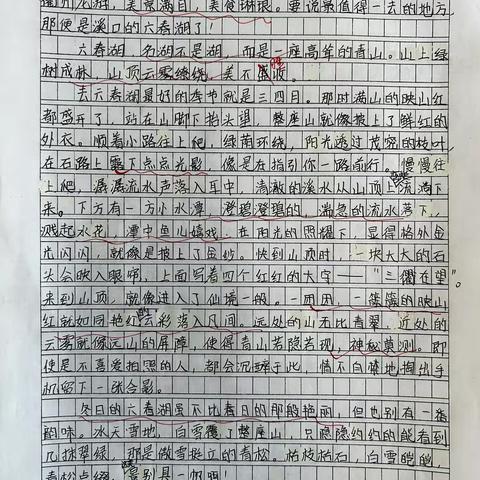 衢州龙游，美景满目，美食琳琅。要说最值得一去的地方，
那便是溪口的六春湖了！
六春湖，名湖不是湖，而是一座高耸的青山。山上绿
树成林，山顶云雾缭绕，美不胜收。
去六春湖最好的季节就是三四月。那时满山的映山红
都盛开了，站在山脚下抬头望，整座山就像披上了鲜红的
外衣。顺着小路往上爬，绿荫环绕，阳光透过茂密的枝叶，
在石路上露下点点光影，像是在指引你一路前行。慢慢往
上爬，潺潺流水声落入耳中，清澈的溪水从山顶上流淌下
来。下方有一方小水潭，澄碧澄碧的，湍急的流水落下，
溅起水花，潭中鱼儿嬉戏，在阳光的照耀下，显得格外金
光闪闪，就像是披上了金纱。快到山顶时，一块大大的石
头会映入眼帘，上面写着四个红红的大字——“三衢在望”。
来到山顶，就像进入了仙境一般。一团团，一簇簇的映山
红就如同艳红的云彩落入凡间。远处的山无比青翠，近处的
云雾就像远山的屏障，使得青山若隐若现，神秘莫测。即
使是不喜爱拍照的人，都会沉醉于此，情不自禁地掏出手
机留下一张合影。
冬日的六春湖虽不比春日的那般艳丽，但也别有一番
韵味。冰天雪地，白雪覆了整座山，只隐隐约约的能看到
几抹翠绿，那是傲雪挺立的青松。枯枝枯石，白雪皑皑，
青松点缀，竟别具一帜啊！